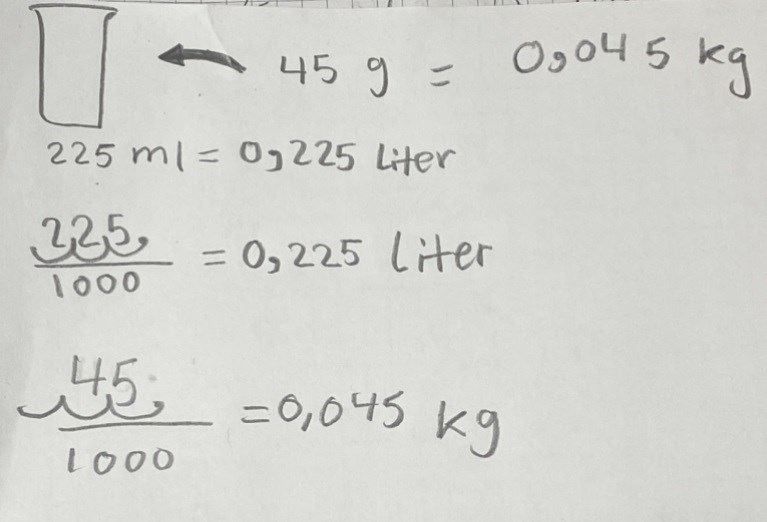 45 g = 0,045 kg
225 ml = 0,225 Liter
225 / 1000 = 0,225 liter
45 / 1000 = 0,045 kg